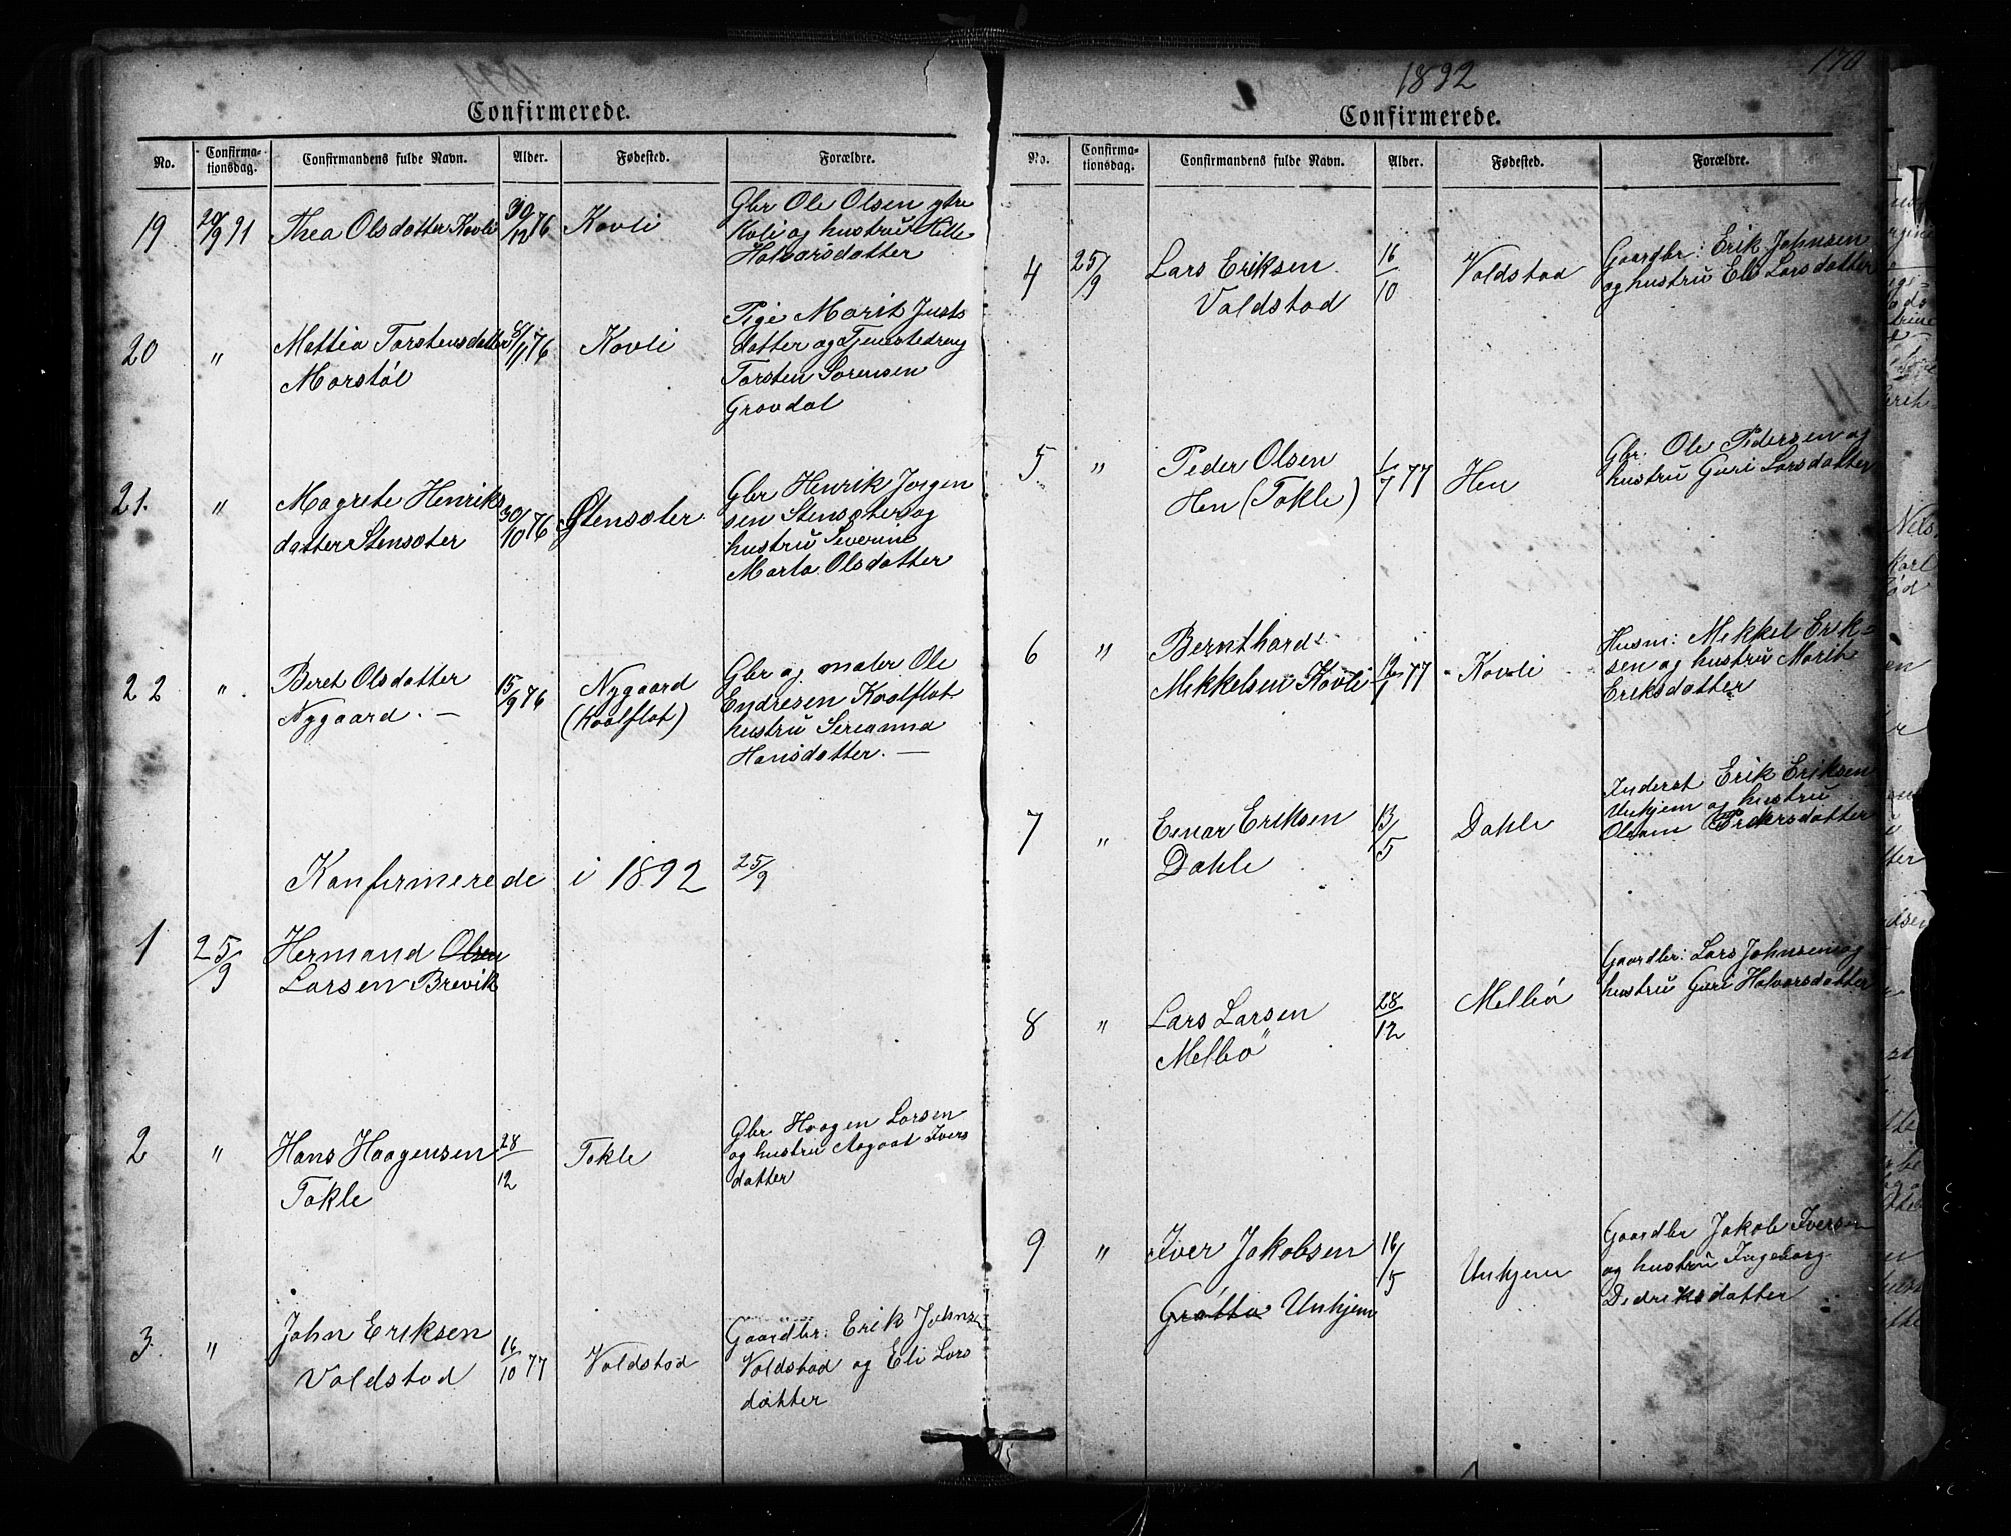 Confirmerede.
No. Confirma-
tionsdag. Confirmandens fulde Navn. Alder. Fødested. Forældre.
19 20/9 91 Thea Olsdatter Kovli 30/12 76 Kovli
Gbr Ole Olsen ytre
Kvli og hustru
Halvarsdatter
20 " Mattea Torstensdatter 76 Kovli
Marstöl
Pige Marit Justs
datter og Tjenestedreng
Torsten Sørensen
Grovdal
21. " Magrete Henriks
datter Stensæter 30/10 76 Stensæter
Gbr Henrik Jørgen
sen Stensæter og
hustru Severine
Marta Olsdatter
22 " Beret Olsdatter
Nygaard. — 15/9 76 Nygaard
(Kaalflat)
Gbr og maler Ole
Endresen Kaalflat
hustru Serianna
Hansdatter. —
Konfirmerede i 1892 25/9
1 25/9 Hermand Olsen
Larsen Brevik
2 " Hans Haagensen
Tokle 28/12 Tokle
Gbr Haagen Larsen
og hustru Aagaat Ivers
datter
3 " John Eriksen
Valdstad 16/10 77 Valdstad
Gaardbr: Erik Johns
Valdstad og Eli Lars
datter
1892
170
Confirmerede.
No. Confirma-
tionsdag. Confirmandens fulde Navn. Alder. Fødested. Forældre.
4 25/9 Lars Eriksen
Valdstad 16/10 Valdstad
Gaardbr: Erik Johnsen
og hustru Eli Larsdatter
5 " Peder Olsen
Hen (Tokle) 1/7 77 Hen
Gbr: Ole Pedersen og
hustru Guri Larsdatter
6 " Bernthard
Mikkelsen Kovli 12/1 77 Kovli
Husm: Mikkel Erik-
sen og hustru Marit
Eriksdatter
7 " Einar Eriksen
Dahle 13/5 Dahle
Inderst Erik Eriksen
Unhjem og hustru
8 " Lars Larsen
Melbö 28/12 Melbö
Gaardbr: Lars Johnsen og
hustru Guri Halvarsdatter
9 " Iver Jakobsen
Grötta Unhjem 16/5 Unhjem
Gaardbr Jakob Iversen
og hustru Ingeborg
Didriksdatter